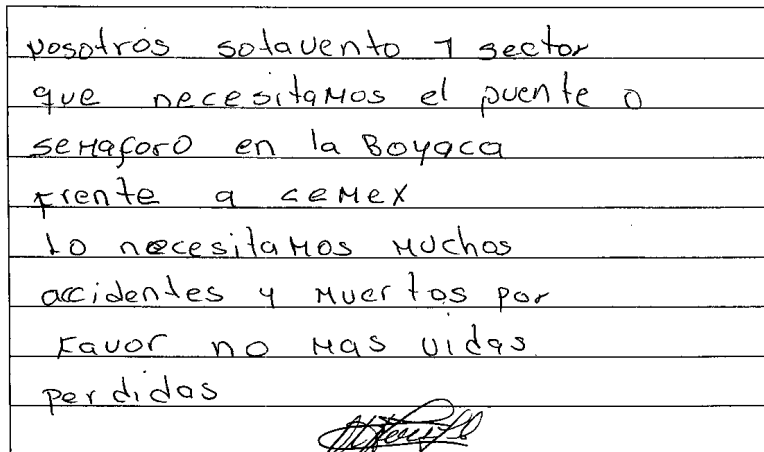 Nosotros sotavento 7 sector
que necesitamos el puente o
semaforo en la Boyaca
Frente a cemex
Lo necesitamos muchos
accidentes y muertos por
Favor no mas vidas
perdidas